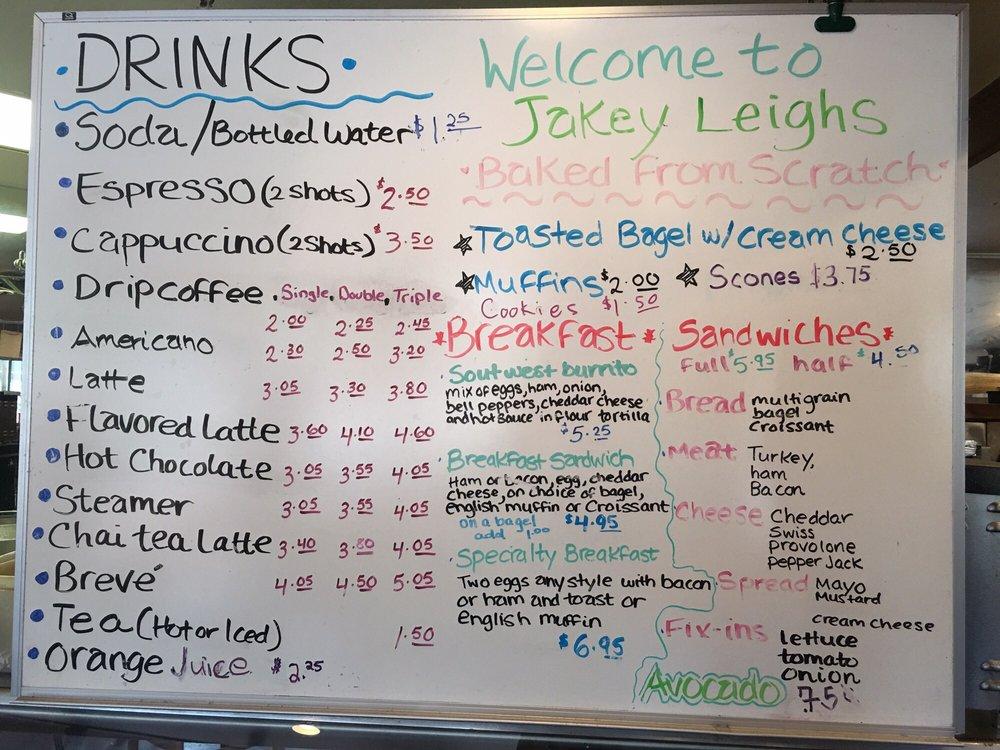 DRINKS
Soda/Bottled Water $1.25
Espresso (2 shots) $2.50
Cappuccino (2 shots) $3.50
Drip coffee . Single, Double, Triple
2.00 2.25 2.45
Americano 2.30 2.50 3.20
Latte 3.05 3.30 3.80
Flavored Latte 3.60 4.10 4.60
Hot Chocolate 3.05 3.55 4.05
Steamer 3.05 3.55 4.05
Chai tea Latte 3.40 3.80 4.05
Brevé 4.05 4.50 5.05
Tea (Hot or Iced) 1.50
Orange Juice $2.25
Welcome to
Jakey Leighs
Baked From Scratch
Toasted Bagel w/ cream cheese
$2.50
Muffins $2.00 Scones $3.75
Cookies $1.50
*Breakfast*
Soutwest burrito
mix of eggs, ham, onion,
bell peppers, cheddar cheese
and hot sauce in flour tortilla
$5.25
Breakfast Sandwich
Ham or bacon, egg, cheddar
cheese, on choice of bagel,
english muffin or Croissant
on a bagel $4.95
add 1.00
Specialty Breakfast
Two eggs any style with bacon
or ham and toast or
english muffin
$6.95
Sandwiches*
full $5.95 half $4.50
Bread multigrain
bagel
Croissant
Meat Turkey,
ham
Bacon
Cheese Cheddar
Swiss
Provolone
Pepper Jack
Spread Mayo
Mustard
cream cheese
Fix-ins lettuce
tomato
onion
Avocado 75¢